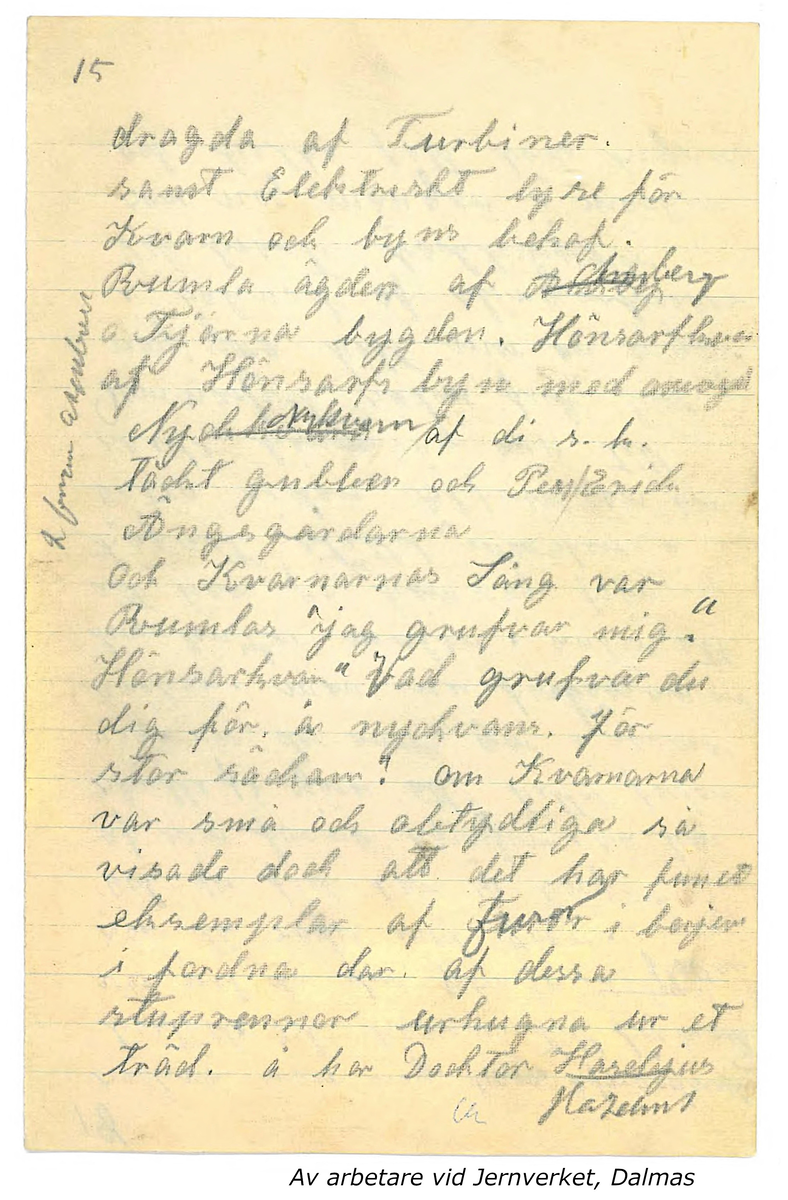 15
dragda af Turbiner.
samt Elektriskt lyse för
Kvarn och byns behof.
Rumla ägden af Amsberg
o Tjärna bygden. Hönsarfkva
af Hönsarfs byn med
Nykvarn af di s. k.
täckt gubben och Per/Erick
Ängsgårdarna
och Kvarnarnas Sång var
Rumlas "jag grufvar mig."
Hönsarkvar" Vad grufvar du
dig för. å nyckvans. För
stor säcken! om Kvarnarna
var små och obetydliga så
visade doch att det har funet
eksemplar af Furor i
i fordna dar. af dessa
stuprennor urhugna ur et
träd. å har Docktor Haselijus
Hazelius
Av arbetare vid Jernverket, Dalmas